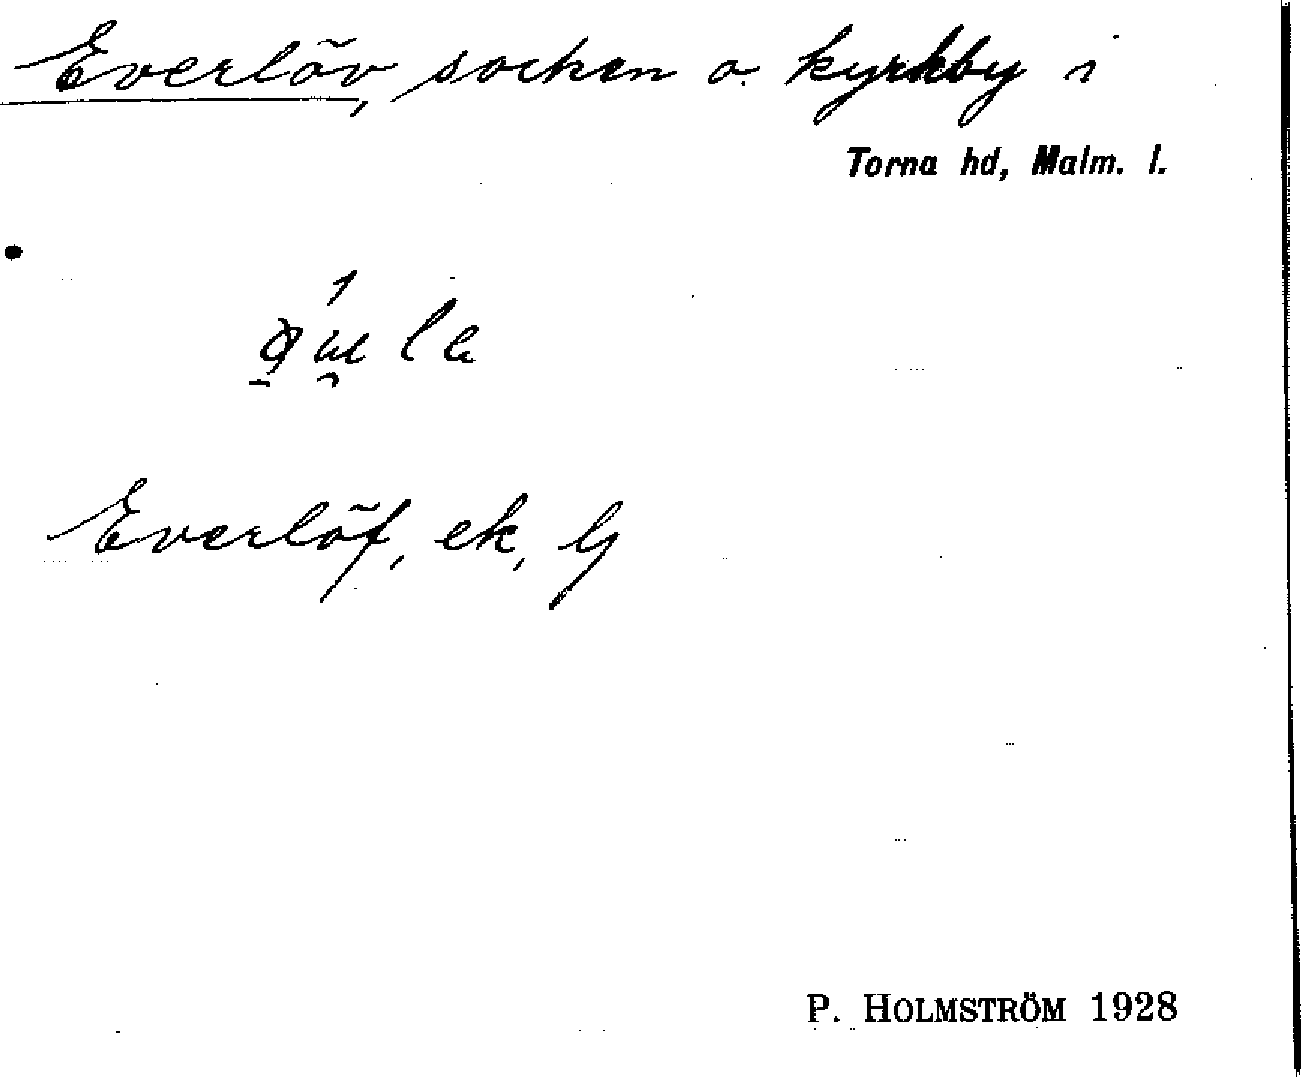 Everlöv, socken o. kyrkby i
Torna hd, Malm. l.
Everlöf, ek, G
P. HOLMSTRÖM 1928